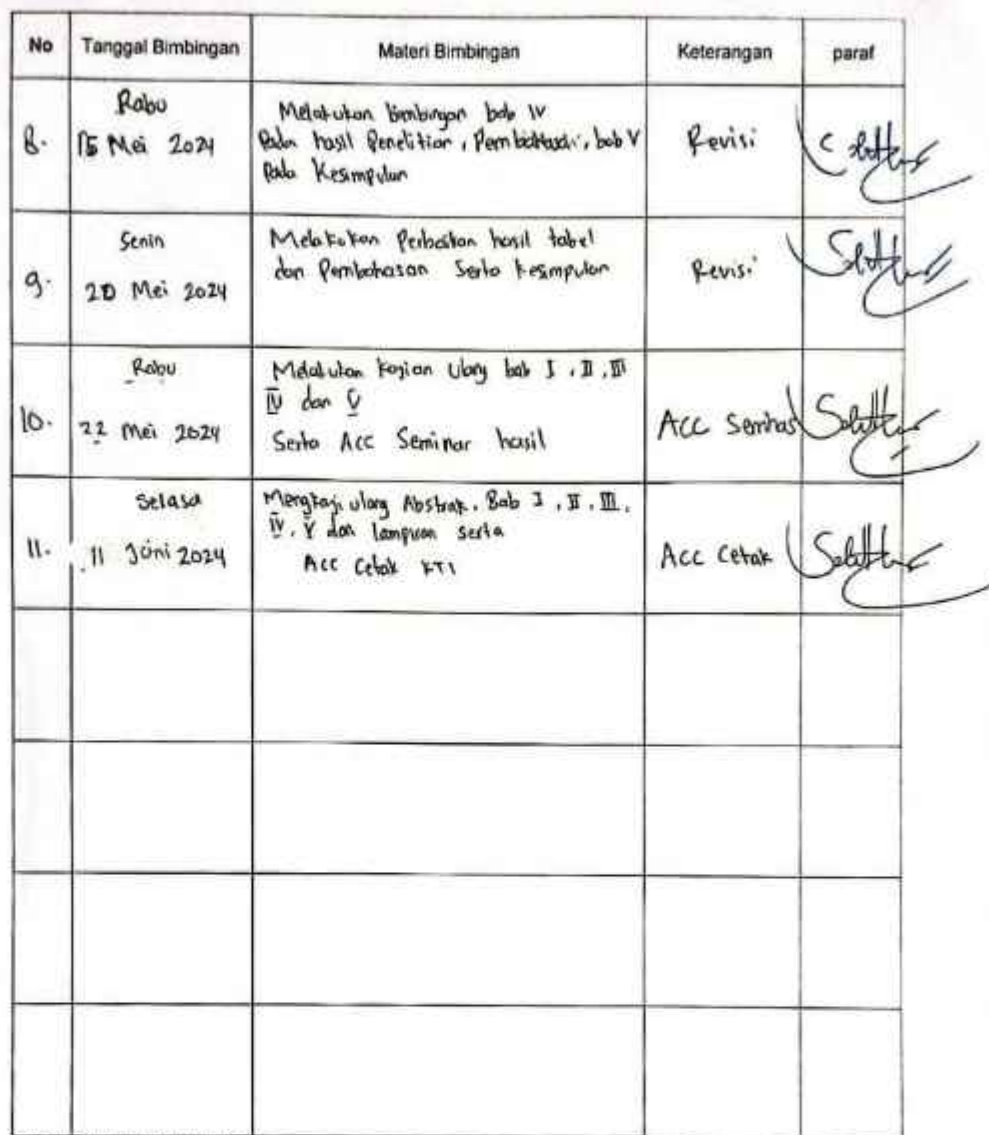 No Tanggal Bimbingan Materi Bimbingan Keterangan paraf
8. Rabu
15 Mei 2024
Melakukan bimbingan bab IV
Pada hasil Penelitian, Pembahasan, bab V
Pada Kesimpulan
Revisi
9. Senin
20 Mei 2024
Melakukan Perbaikan hasil tabel
dan Pembahasan Serta kesimpulan
Revisi
10. Rabu
22 Mei 2024
Melakukan kajian Ulang bab I, II, III
IV dan V
Serta Acc Seminar hasil
Acc Semhas
11. Selasa
11 Juni 2024
Mengkaji ulang Abstrak, Bab I, II, III,
IV, V dan lampiran serta
Acc Cetak KTI
Acc Cetak